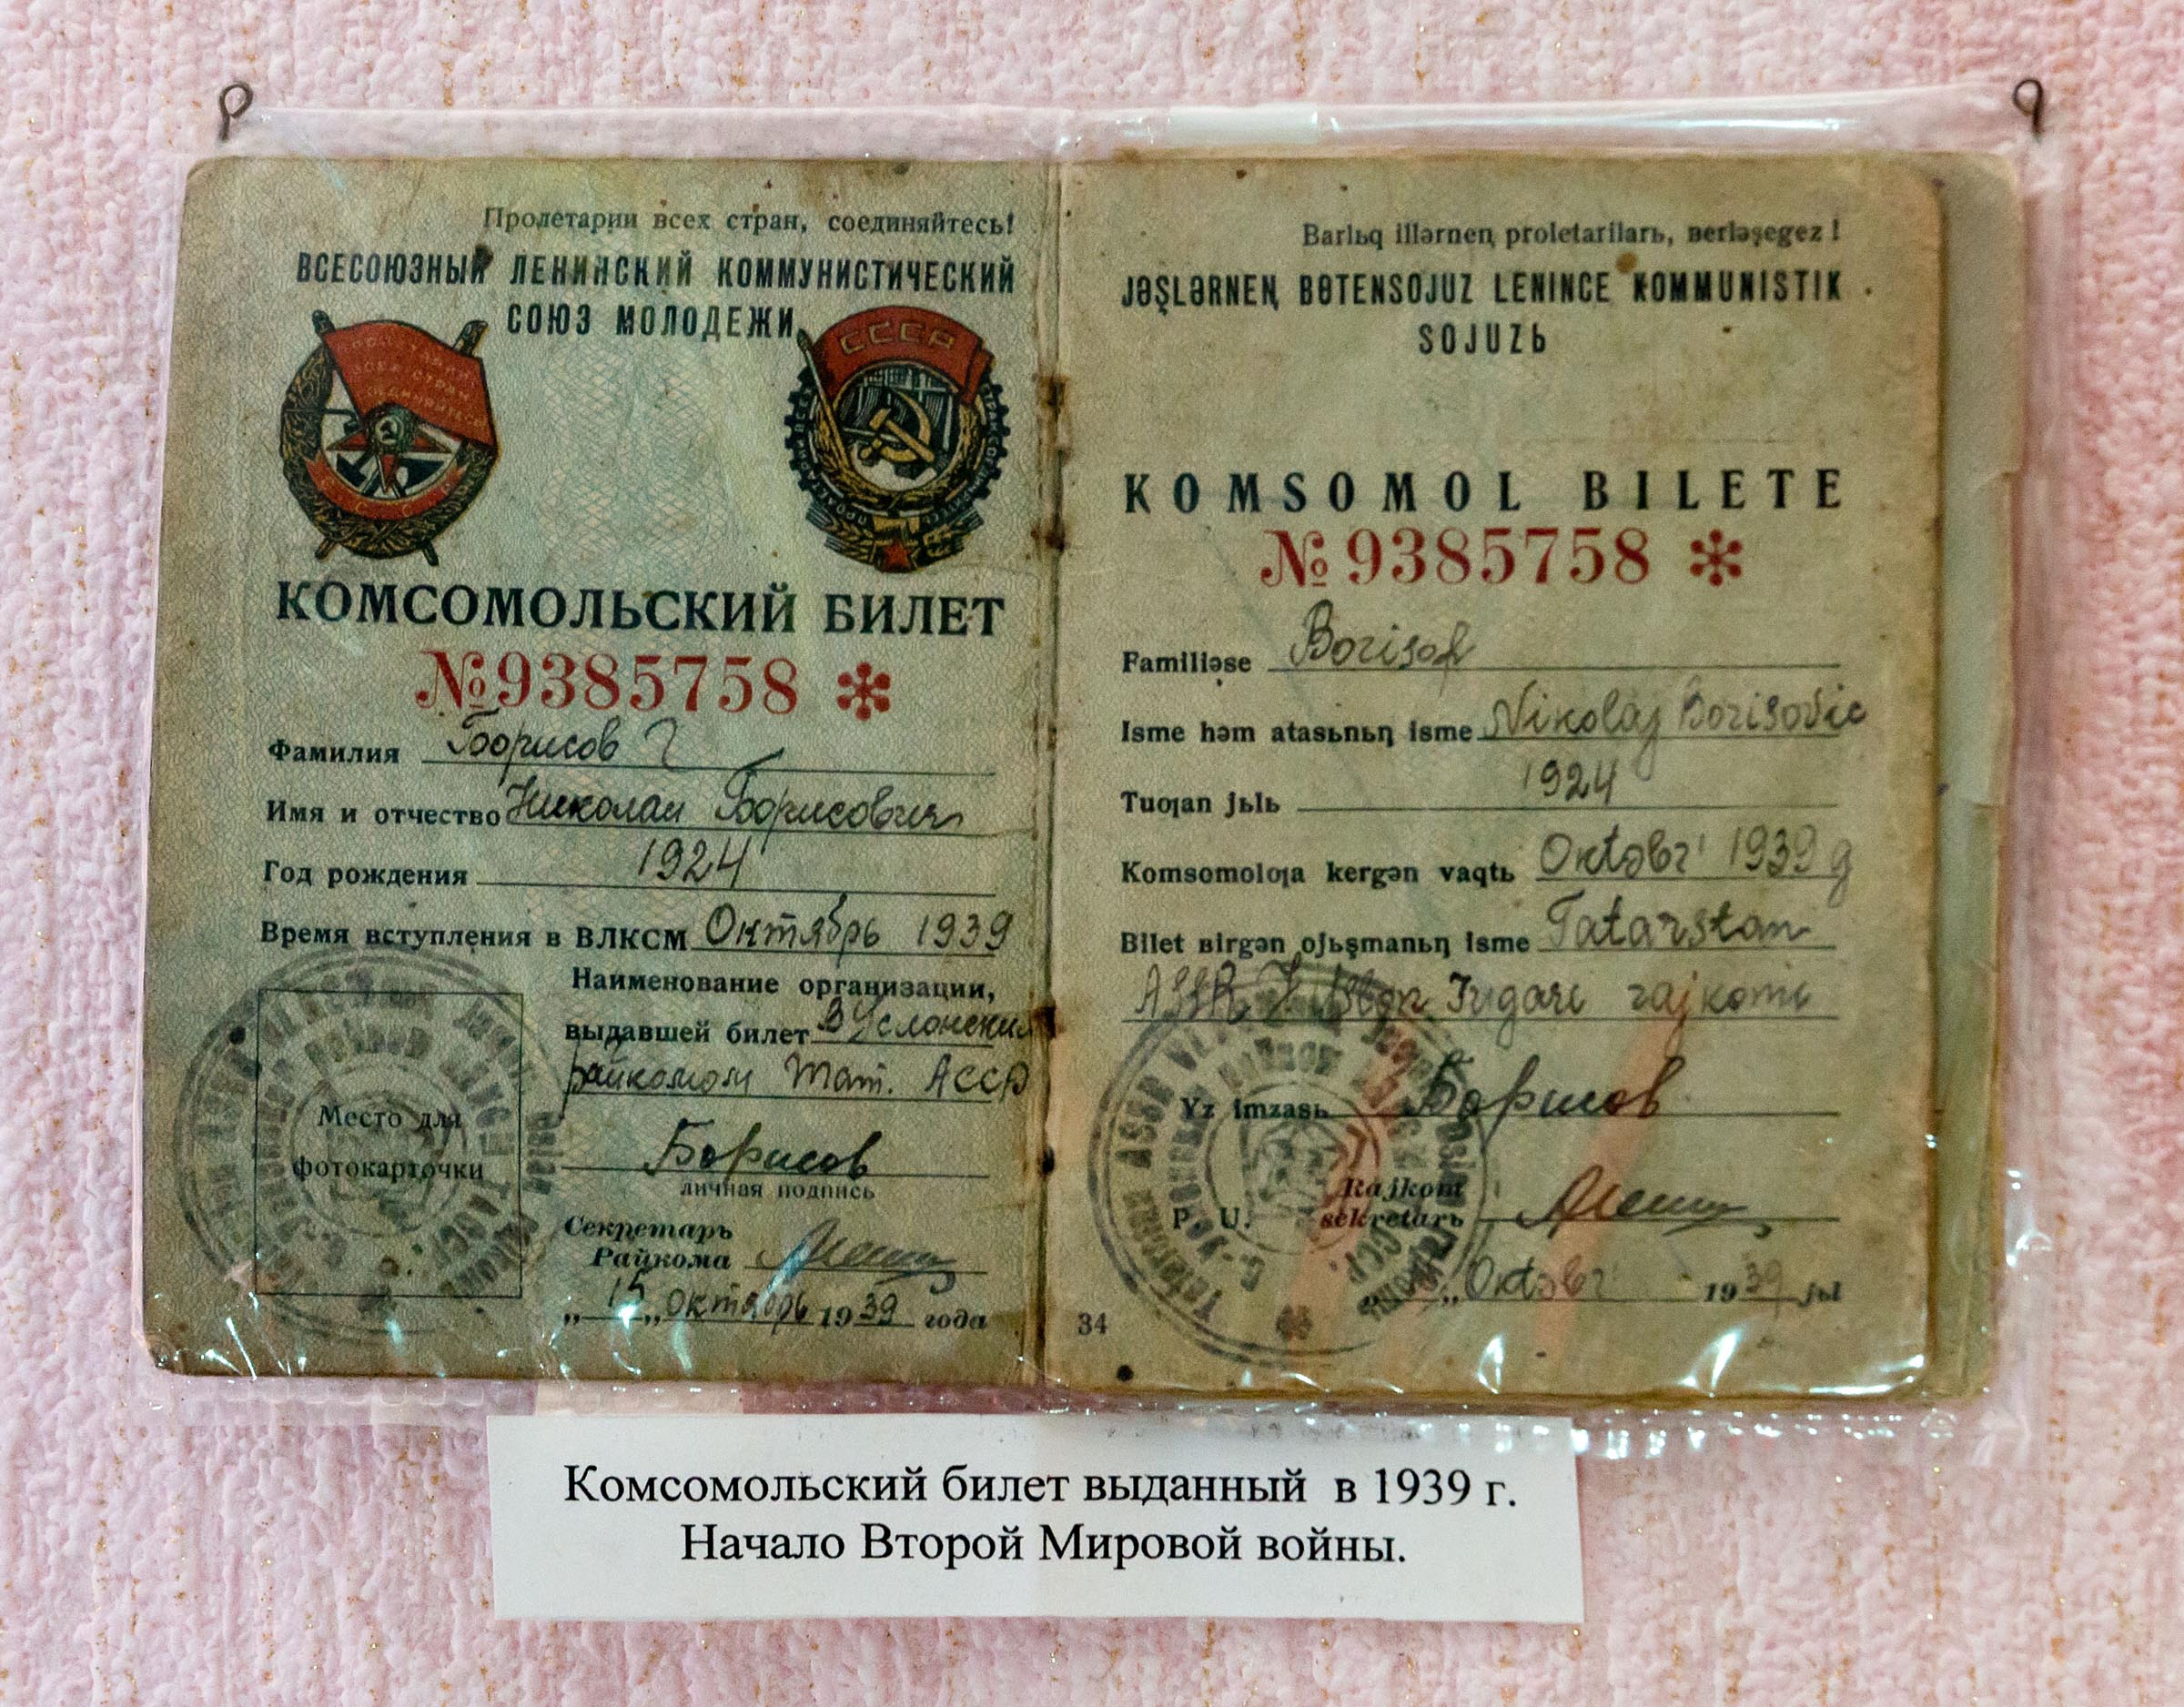 Пролетарии всех стран, соединяйтесь!
ВСЕСОЮЗНЫЙ ЛЕНИНСКИЙ КОММУНИСТИЧЕСКИЙ
СОЮЗ МОЛОДЕЖИ
СССР
КОМСОМОЛЬСКИЙ БИЛЕТ
№9385758 *
Фамилия Борисов
Имя и отчество Николай Борисович
Год рождения 1924
Время вступления в ВЛКСМ Октябрь 1939
Наименование организации,
выдавшей билет В Услонский
райкомом Тат. АССР
Место для
фотокарточки
Борисов
личная подпись
Секретарь
Райкома
„ 15 „ октябрь 1939 года
Barlьq illərneņ proletarilarь, ʙerləşegez!
JƏŞLƏRNEŅ BƟTENSOJUZ LENINCE KOMMUNISTIK
SOJUZЬ
KOMSOMOL BILETE
№9385758 *
Familiəse Borisof
Isme həm atasьnьņ isme Nikolaj Borisovic
Tuƣan jьlь 1924
Komsomolƣa kergən vaqtь Oktəbr 1939 g
Bilet ʙirgən ojьşmanьņ isme Tatarstan
ASSR rajkomi
Yz imzasь Борисов
P. U.
Rajkom
sekretarь
Oktəbr 1939 jьl
34
Комсомольский билет выданный в 1939 г.
Начало Второй Мировой войны.